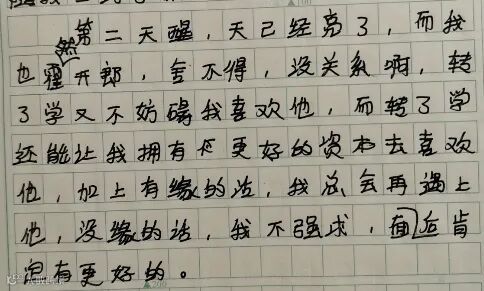 第二天醒，天已经亮了，而我
也霍然开郎，舍不得，没关系啊，转
了学又不妨碍我喜欢他，而转了学
还能让我拥有更好的资本去喜欢
他，加上有缘的话，我总会再遇上
他，没缘的话，我不强求，面后肯
定有更好的。